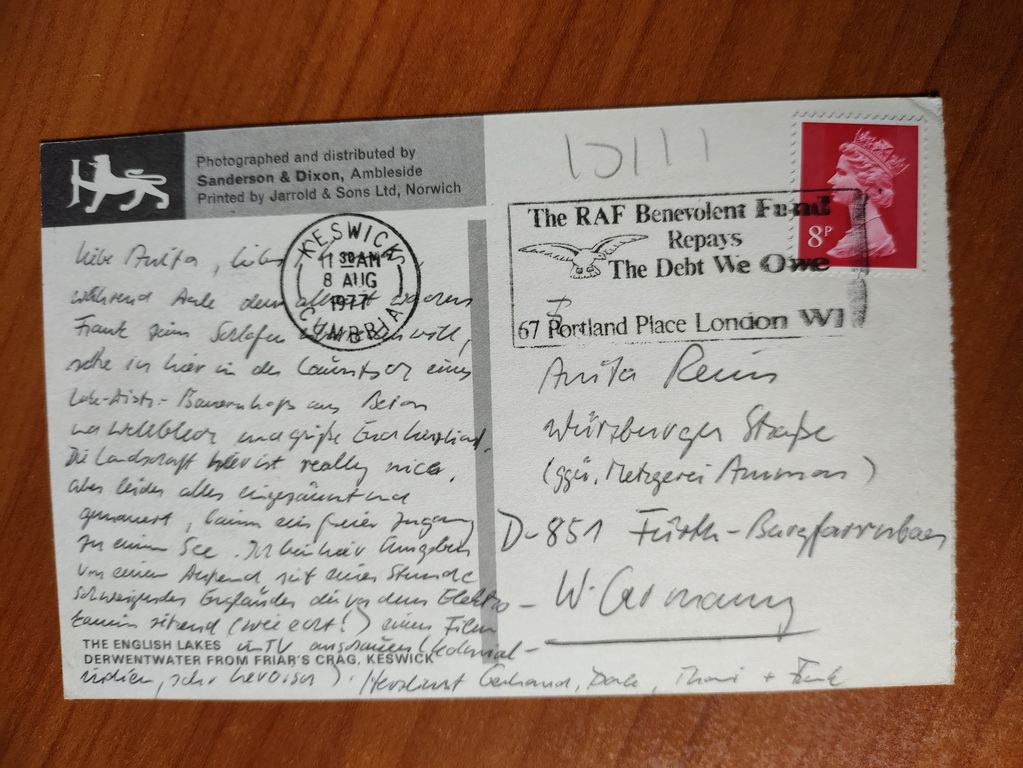 Photographed and distributed by
Sanderson & Dixon, Ambleside
Printed by Jarrold & Sons Ltd, Norwich
KESWICK
11 30 AM
8 AUG
1977
CUMBRIA
The RAF Benevolent Fund
Repays
The Debt We Owe
67 Portland Place London W1
8P
Liebe Anita,
während
Frank seinen Schlafen will,
hier in der eines
Lake-Distr.- Bauernhofs aus Beton
und Wellblech und grüße Euch herzlichst.
Die Landschaft hier ist really nice,
aber leider alles eingezäunt und
gemauert, kaum ein freier Zugang
zu einem See. Ich bin hier umgeben
von einem Dutzend seit einer Stunde
schweigender Engländer die vor dem Elektro-
kamin sitzend (wie echt!) einen Film
in TV anschauen (Kolonial-
indien, sehr heroisch). Herzlichst Gerhard, + Frank
THE ENGLISH LAKES
DERWENTWATER FROM FRIAR'S CRAG, KESWICK
Anita
Würzburger Straße
(ggü. Metzgerei Ammon)
D-851 Fürth-Burgfarrnbach
W. Germany